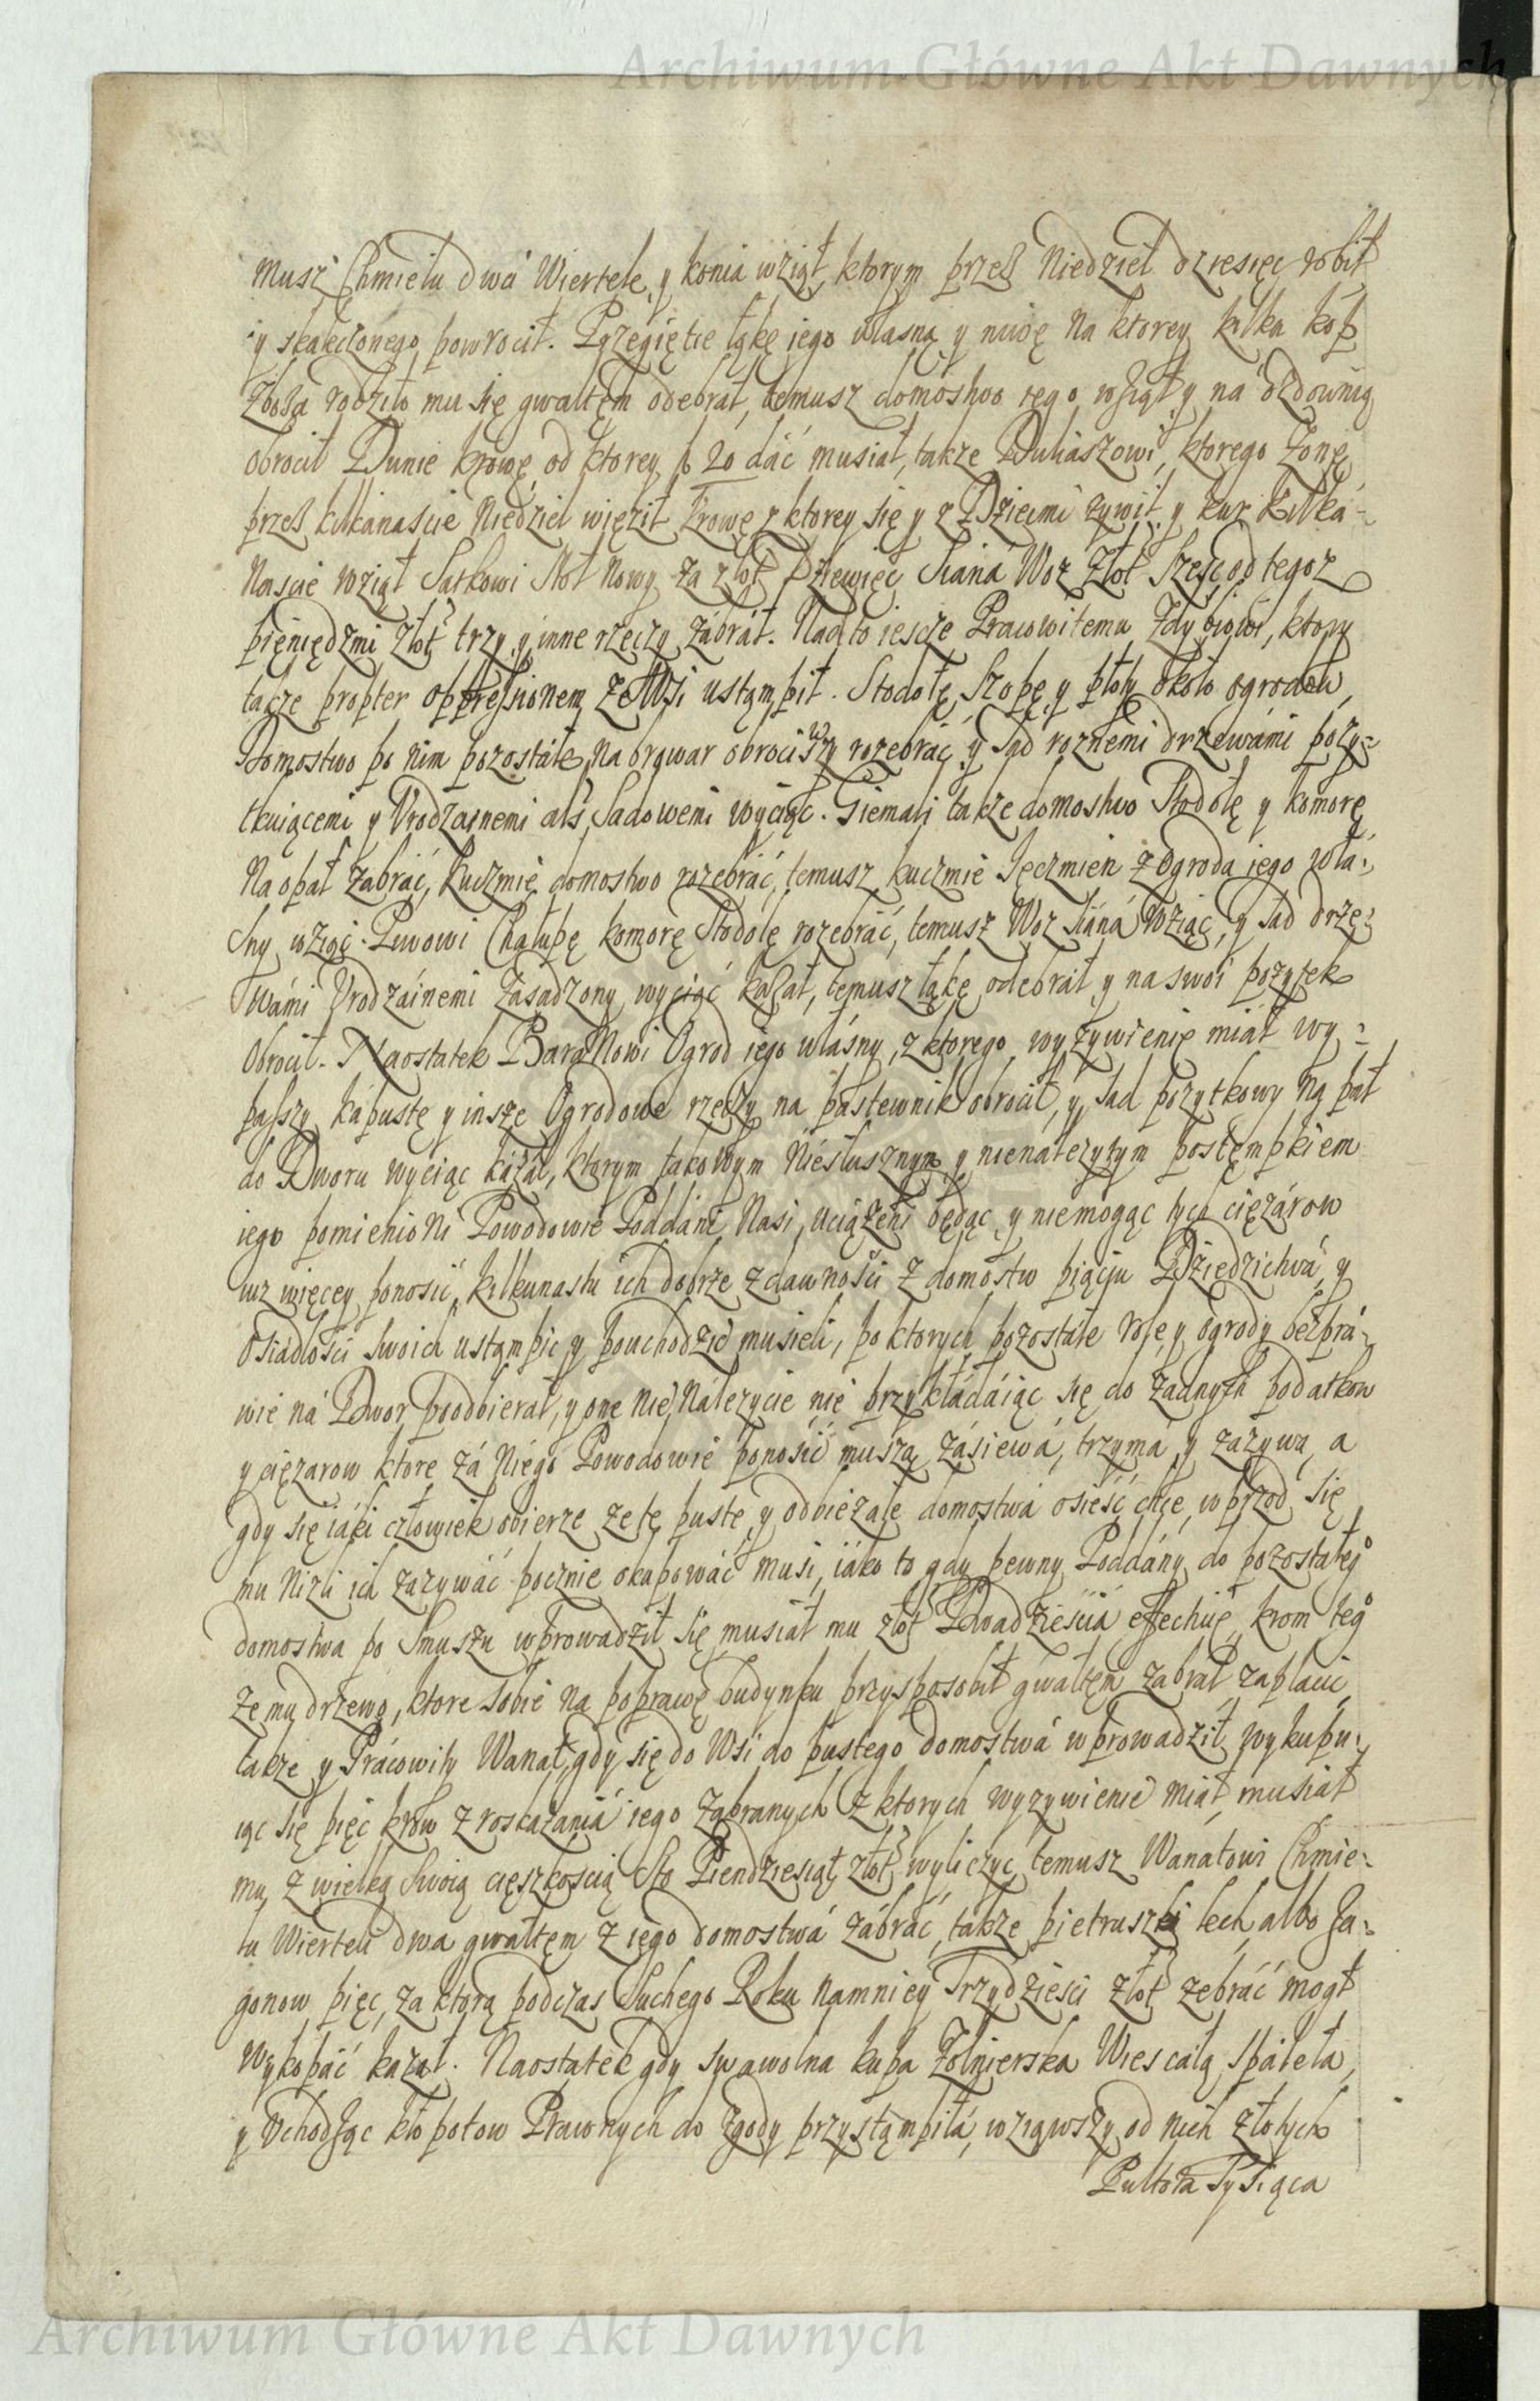 Archiwum Główne Akt Dawnych
musz Chmielu dwa Wiertele, y konia wziął, ktorym przeß Niedziel dziesięc robił
y skaliczonego powrocił. Przegiętie łąkę iego własną y niwę na ktorey kilka kop
Zboża rodziło mu się gwałtem odebrał, temusz domostwo iego wziął y na ozdownią
obrocił Dunie krowę, od ktorey f 20 dać musiał, takze Duliaszowi, ktorego Zonę
przeß kilkanascie Niedziel więził Krowę z ktorey się y z Dziecmi zywił, y kur kilka-
Nascie wziął Satkowi Stoł Nowy za złot Dziewięc, Siana Woz złot szesc od tegoz
pięniędzmi złot trzy, y inne rzeczy zábrał. Nad to iescze Pracowitemu, ktory
takze propter oppressionem ze Wsi ustąmpił. Stodołę, Szopę, y płoty około ogrodow,
Domostwo po nim pozostałe, na browar obrociwszy rozebrác, y Sad roznemi drzewámi pozy-
tkuiącemi y Vrodzajnemi als Sadowemi wyciąc. Giemali takze domostwo Stodołę y komorę
Na opał zabrác, Kuczmie domostwo rozebrác, temusz kuczmie Jęczmien z ogroda iego wła-
sny wziąc. Lwowi Chałupę komorę Stodołę rozebrác, temusz Woz siáná Wziąc, y Sad drze-
wámi Vrodzáinemi zásadzony wyciąć kazał, temusz łąkę odebrał y na swoi pozytek
Obrocił. Naostatek BaraNowi Ogrod iego własny, z ktorego wyzywienie miał wy-
passzy, kápustę y insze Ogrodowe rzeczy na pastewnik obrocił, y Sad pozytkowy na pał
do Dworu wyciąc kázał, ktorym takowym Niesłusznym y nienalezytym postęmpkiem
iego pomienioNi Powodowie Poddáni Nasi, uciążeni będąc, y niemogąc tych ciężárow
iuz więcey ponosić, kilkunastu ich dobrze z dawności z domostw piąciu Dziedzictwá, y
Osiadłości swoich ustąmpic y pouchodzić musieli, po ktorych pozostałe role, y ogrody bezprá-
wie ná Dwor poodbierał, y one Nie Nalezycie nie przykłádáiąc się do zadnych podatkow
y ciężarow ktore zá Niego Powodowie ponosić muszą, zásiewá, trzymá, y zázywa, a
gdy się iáki człowiek obierze ze te puste, y odbieżałe domostwá osieść chce, wprzod się
mu Nizli ich zazywác pocznie okupowác musi, iáko to gdy pewny Poddány do pozostałeg°
domostwa po Smuszu wprowadził się, musiał mu złot Dwadziesciá effectiue, krom teg°
ze mu drzewo, ktore sobie na poprawę budynku przysposobił gwałtem zabrał zapłacic,
takze y Prácowity Wanat, gdy się do Wsi do pustego domostwá wprowadził, wykupu-
iąc się pięc krow z roskazaniá iego zabranych z ktorych wyzywienie miał, musiał
mu z wielką swoią cięszkoscią Sto Piendziesiąt złot wyliczyc, temusz Wanatowi Chmie-
lu Wierteli dwa gwałtem z iego domostwá zábrác, takze pietruszki lech, albo Za-
gonow pięc, za ktorą podczas Suchego Roku namniey Trzydziesci złot zebráć mogł
Wykopáć kazał. Naostatek gdy swawolna kupa Zołnierska Wies całą spaleła,
y Vchodząc kłopotow Prawnych do zgody przystąmpiłá, wziąwszy od nich złotych
Pułtora Tysiąca
Archiwum Główne Akt Dawnych